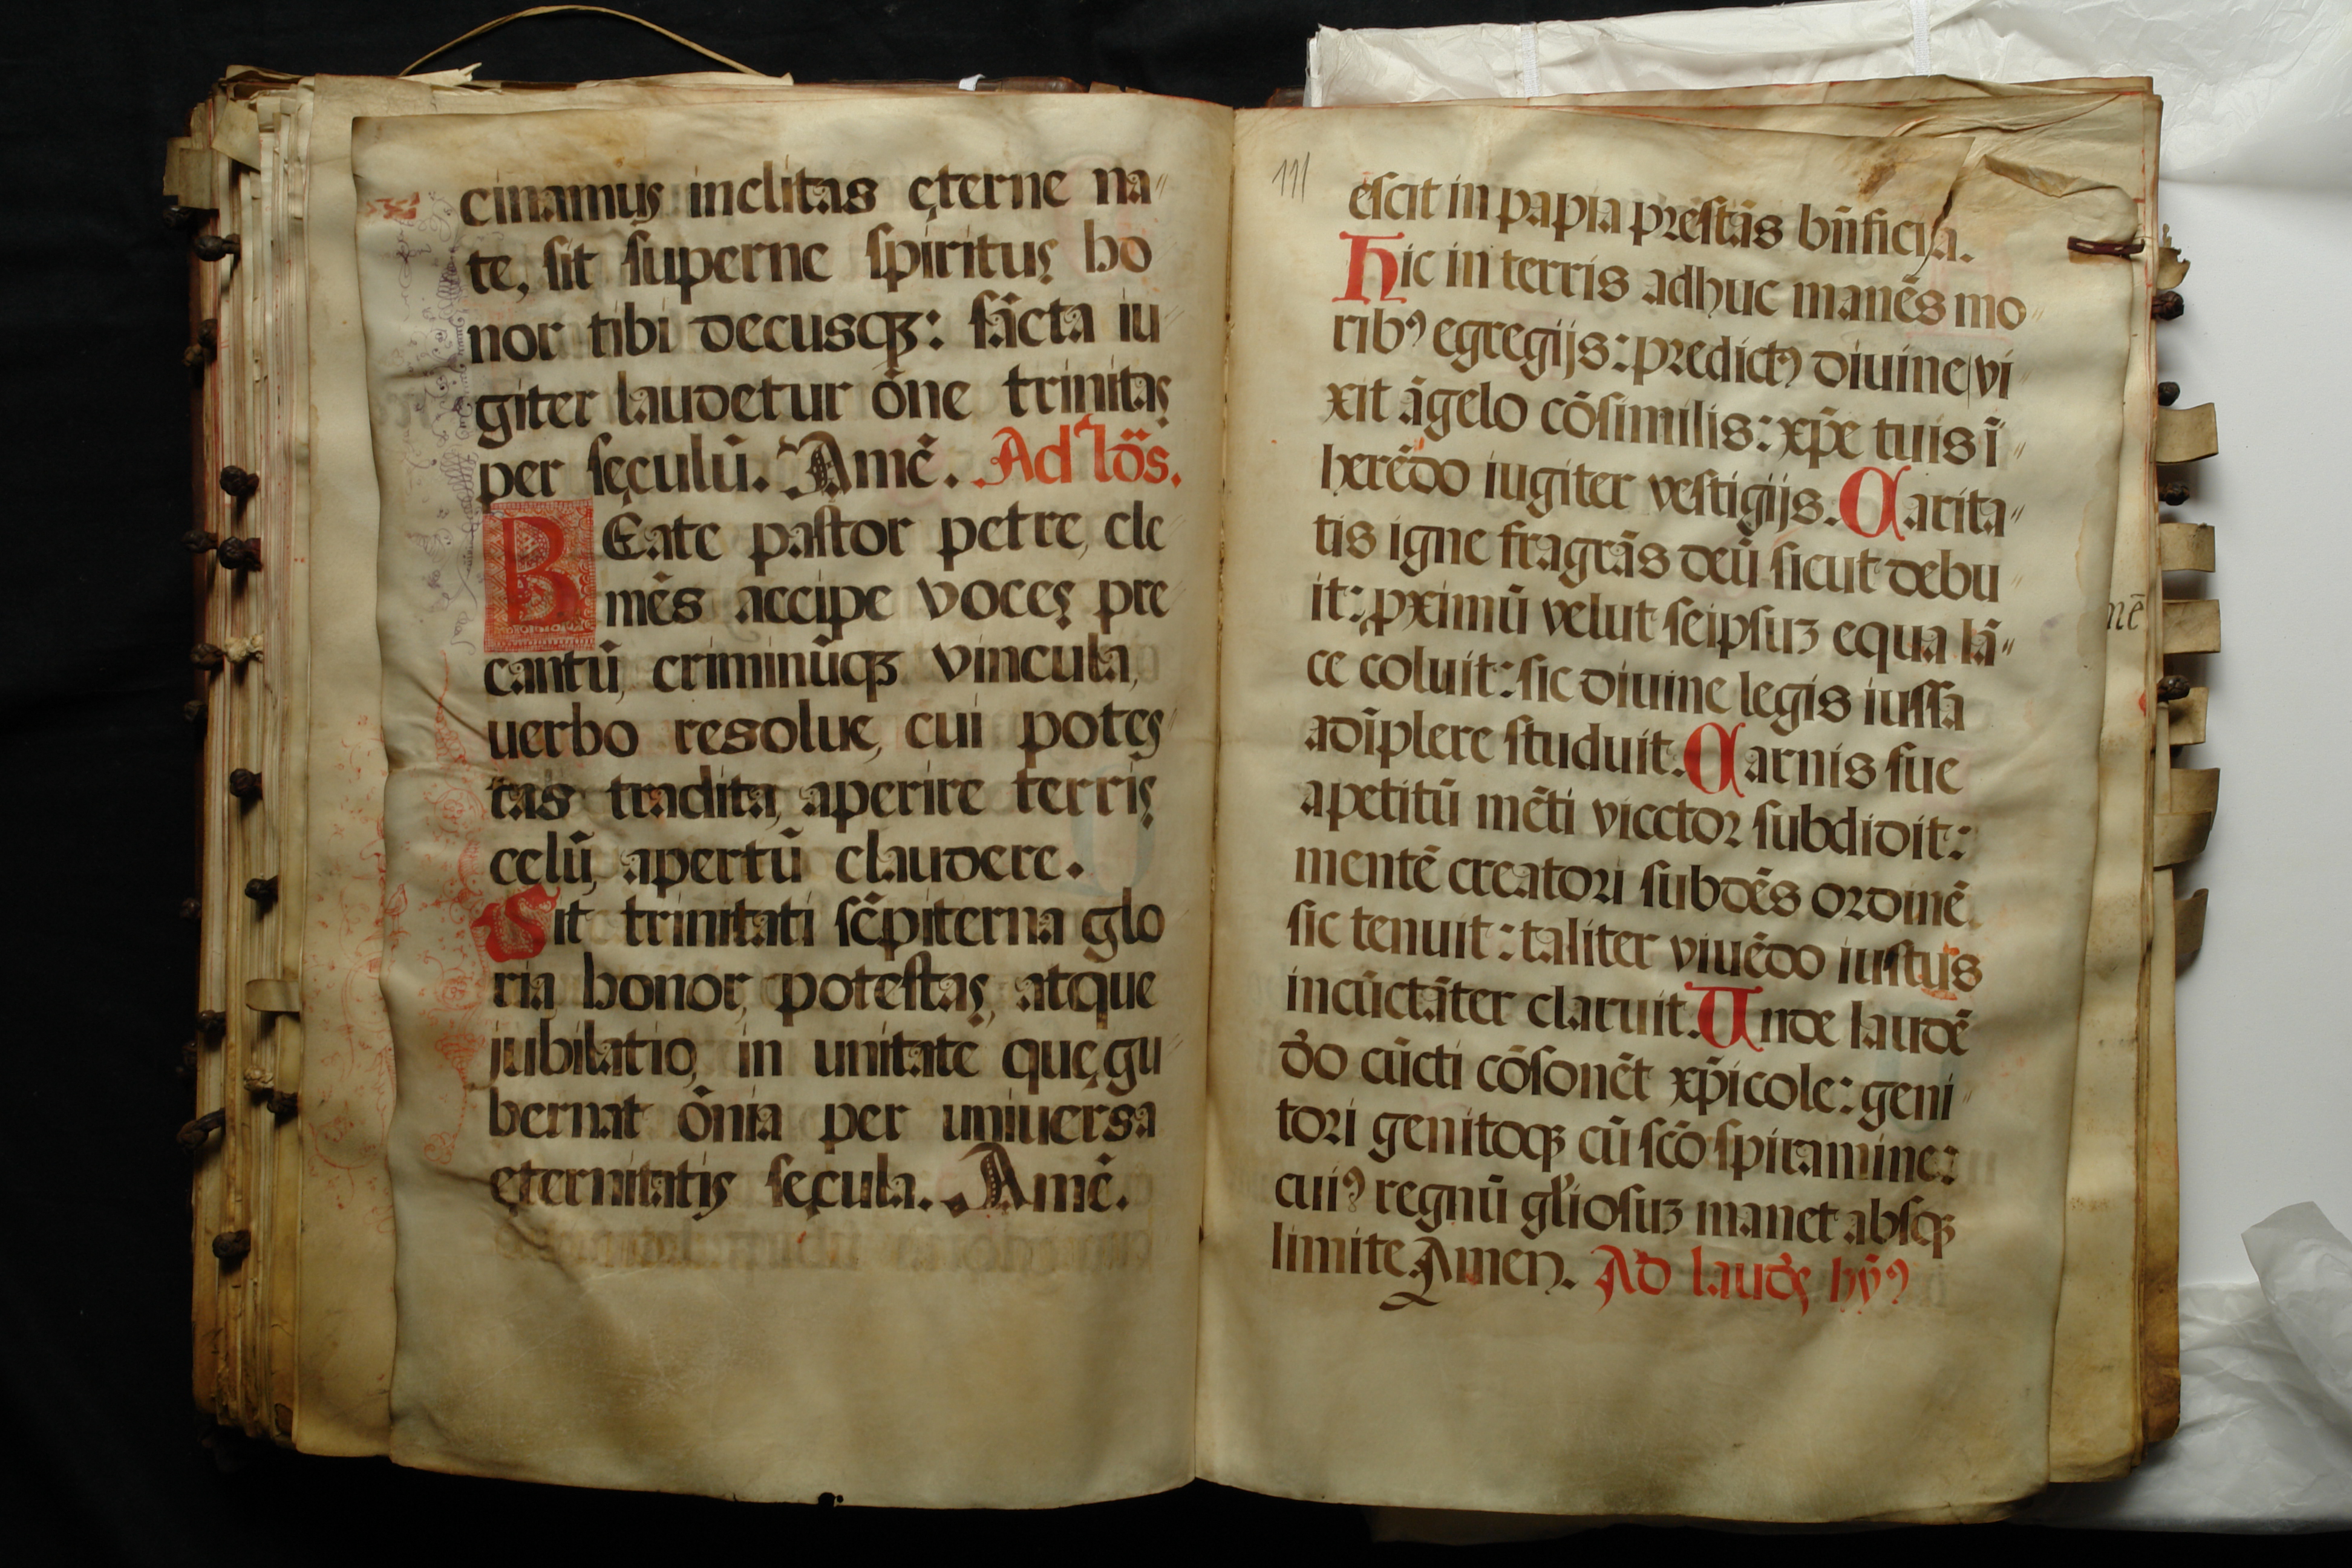 cinamus inclitas ęterne na″
te, sit superne spiritus ho
nor tibi decusqꝫ: sācta iu″
giter laudetur ōne trinitas
per sęculū. Amē. Ad lōs.
BEate pastor petre, cle″
mēs accipe voces pre″
cantū, criminūqꝫ vincula,
uerbo resolue, cui potes″
tas tradita, aperire terris
celū, apertū claudere.
Sit trinitati sēpiterna glo
ria honor, potestas, atque
iubilatio, in unitate quę gu″
bernat ōnia per uniuersa
ęternitatis sęcula. Amē.
111
escit in papia prestās bn̄ficija.
Hic in terris adhuc manēs mo″
ribꝰ egregijs: predictꝰ diuine vi″
xit āgelo cōsimilis: xp̄e tuis ī″
herēdo iugiter vestigijs. Carita″
tis igne fragrās deū sicut debu″
it: ꝓximū velut seipsuꝫ equa lā″
ce coluit: sic diuine legis iussa
adīplere studuit. Carnis sue
apetitū mēti vicctor subdidit:
mentē creatori subdēs ordinē
sic tenuit: taliter viuēdo iustus
incūctāter claruit. Unde laudē
dō cūcti cōsonēt xp̄icole: geni″
tori genitoqꝫ cū scō spiramine:
cuiꝰ regnū gl̄iosuꝫ manet absqꝫ
limite. Amen. Ad laudes hȳꝰ
mē